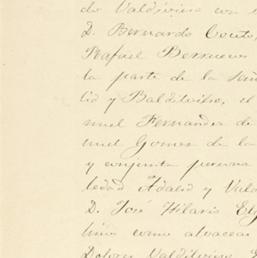 de Valdivieso con
D. Bernardo Couto,
Rafael Berruecos
la parte de la
lid y Valdivielso, el
nuel Fernandez de
nuel Gomez de la
y conjunta persona
ledad Adalid y Vald
D. José Hilario El
tiño como albaceas
Dolores Valdivieso